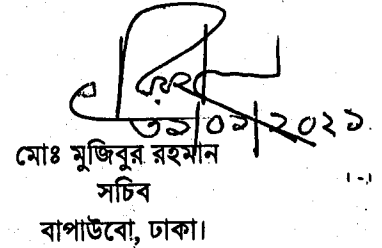 ৩১|০১|২০২১
মোঃ মুজিবুর রহমান
সচিব
বাপাউবো, ঢাকা।